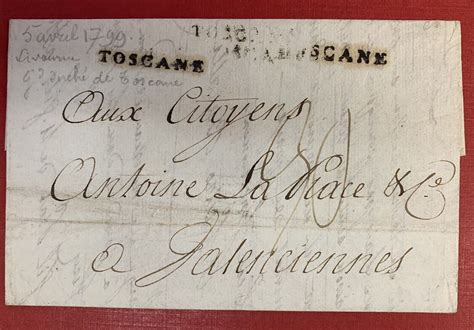 5 avril 1799
Livourne
Gd Duché de Toscane
TOSCANE
TOSCANE
Aux Citoyens
Antoine La Place & Ce
a Valenciennes